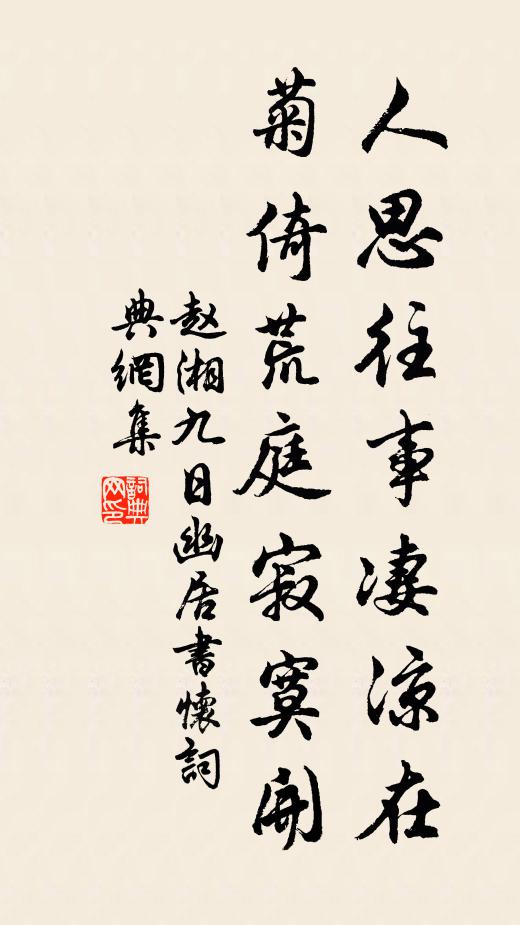 人思往事凄涼在
菊倚荒庭寂寞開
赵湘九日幽居書懷詞
典網集
詞典
网印